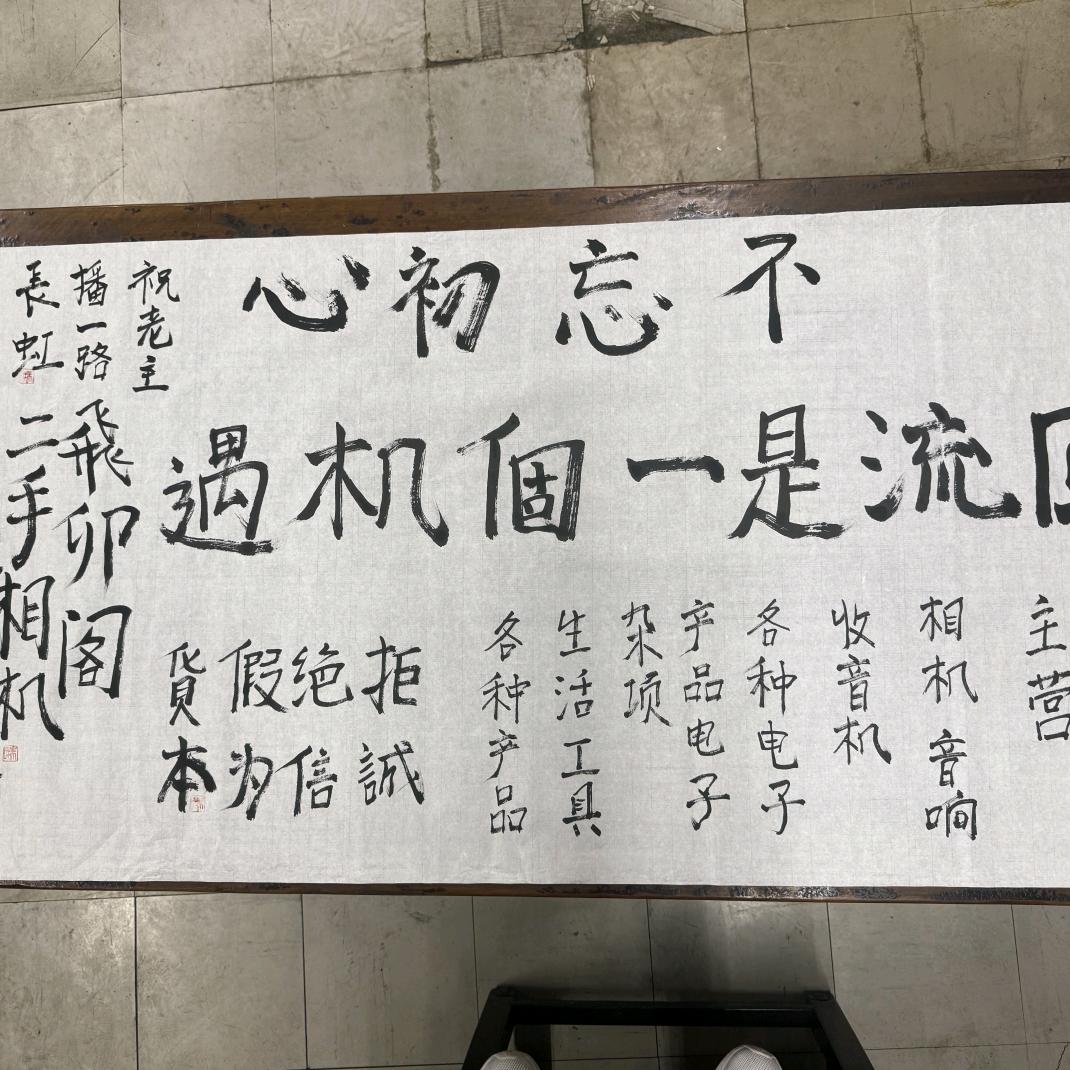 不忘初心
回流是一個机遇
主营
相机 音响
收音机
各种电子
产品电子
杂项
生活工具
各种产品
拒絶假貨
誠信为本
祝老主
播一路
長虹
飛卯阁
二手相机